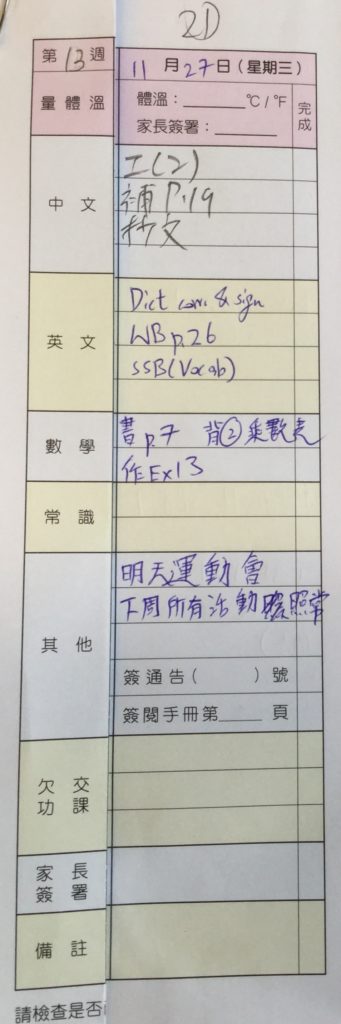 2D
第13週 11月27日(星期三)
量體溫 體溫：______℃/℉ 完成
家長簽署：______
中文 工(2)
補P.19
抄文
英文 Dict corr. & sign
WB p.26
SSB(Vocab)
數學 書p.7 背②乘數表
作Ex13
常識
其他 明天運動會
下周所有活動照常
簽通告( )號
簽閱手冊第_____頁
欠交功課
家長簽署
備註
請檢查是否